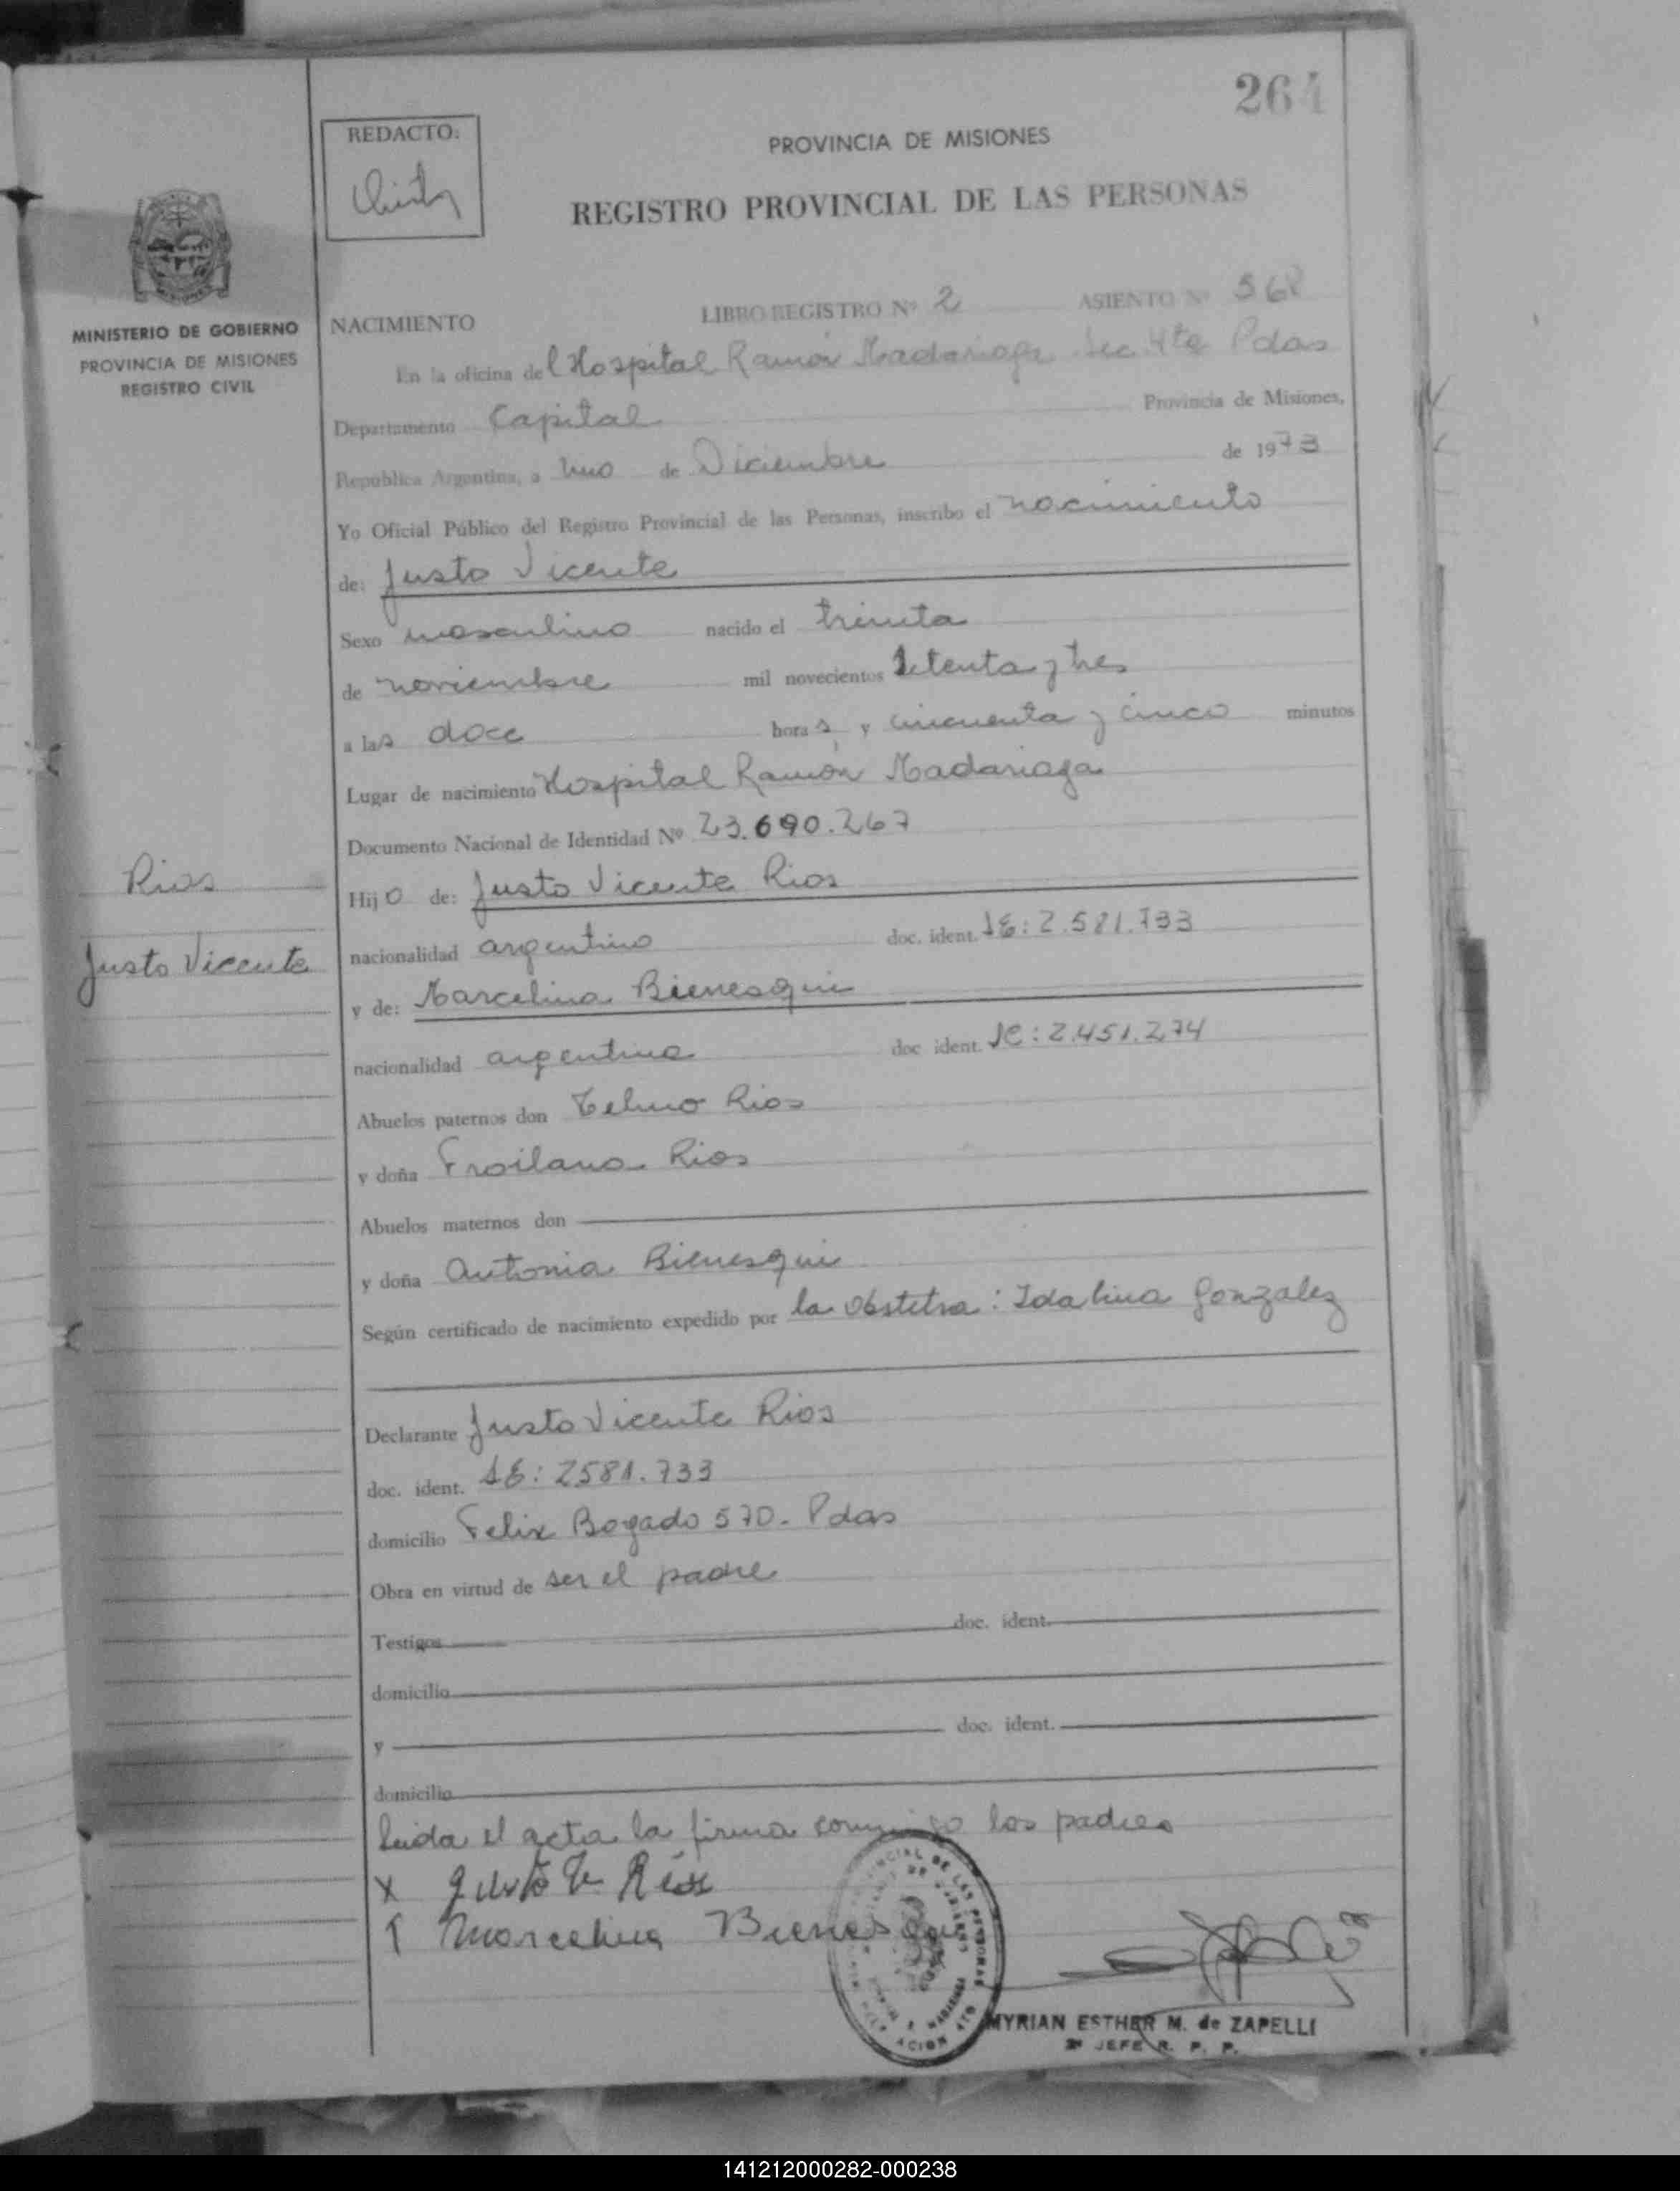 264
REDACTO:
PROVINCIA DE MISIONES
REGISTRO PROVINCIAL DE LAS PERSONAS
MINISTERIO DE GOBIERNO
PROVINCIA DE MISIONES
REGISTRO CIVIL
NACIMIENTO LIBRO REGISTRO Nº 2 ASIENTO Nº 568
En la oficina del Hospital Ramón Madariaga Sec. 4ta Pdas
Departamento Capital Provincia de Misiones,
República Argentina, a uno de Diciembre de 1973
Yo Oficial Público del Registro Provincial de las Personas, inscribo el nacimiento
de: Justo Vicente
Sexo masculino nacido el treinta
de noviembre mil novecientos setenta y tres
a las doce horas y cincuenta y cinco minutos
Lugar de nacimiento Hospital Ramón Madariaga
Documento Nacional de Identidad Nº 23.690.267
Rios
Hijo de: Justo Vicente Rios
Justo Vicente
nacionalidad argentino doc. ident. LE: 2.581.733
y de: Marcelina Bienesqui
nacionalidad argentina doc ident. LC: 2.451.274
Abuelos paternos don Telmo Rios
y doña Froilana Rios
Abuelos maternos don
y doña Antonia Bienesqui
Según certificado de nacimiento expedido por la obstetra: Idalina Gonzalez
Declarante Justo Vicente Rios
doc. ident. LE: 2581.733
domicilio Felix Bogado 570 - Pdas
Obra en virtud de ser el padre
Testigos doc. ident.
domicilio
y doc. ident.
domicilio
Leida el acta la firma conmigo los padres
x Justo V. Rios
Marcelina Bienesqui
MYRIAN ESTHER M. de ZAPELLI
2º JEFE R. P. P.
141212000282-000238